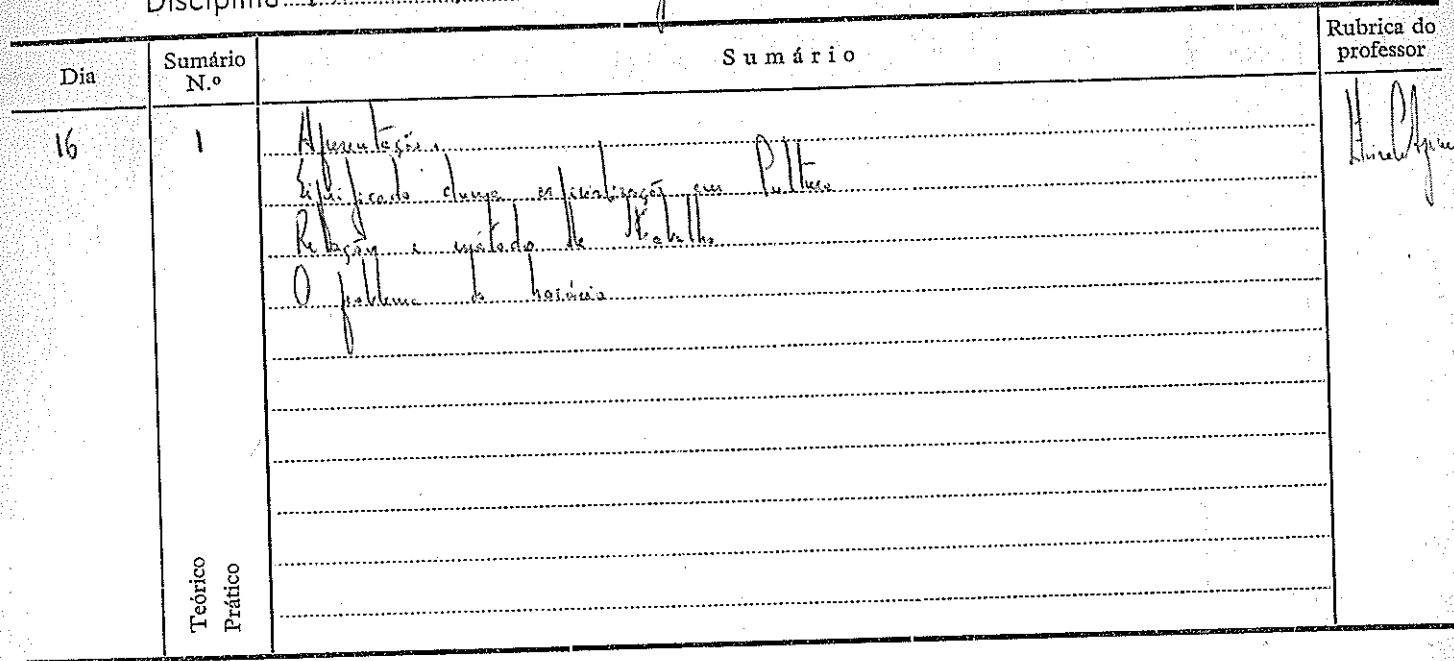 Disciplina
Dia
Sumário N.º
Sumário
Rubrica do professor
16
1
Apresentação.
Significado duma especialização em
Relações e método de trabalho
O problema do horário
Teórico
Prático